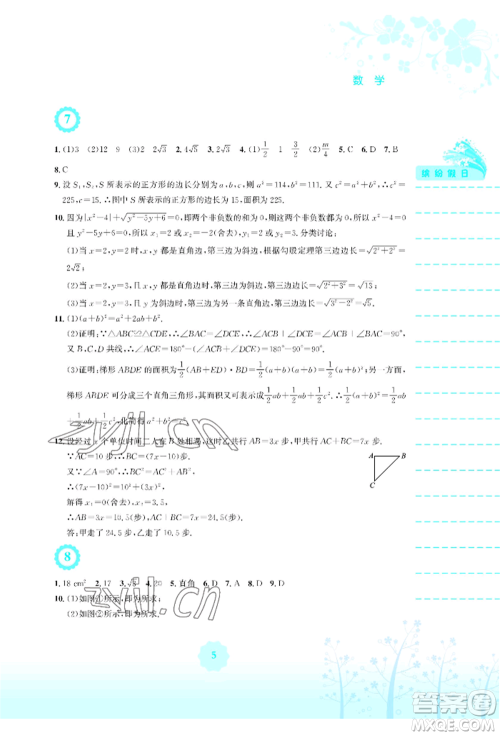 数学
7
1. (1)3 (2)12 9 (3)2 2. √3 3. 2√5 4. (1)1/2 1 3/2 (2)m/4 5. C 6. D 7. C
8. C
缤纷假日
9. 设 S₁,S₂,S 所表示的正方形的边长分别为 a,b,c,根据勾股定理,a²+b²=c²=
225,S=225.图中 S 所表示的正方形的边长为 15,面积为 225.
10. ∵|x²-4|+√(y²-5y+6)=0,即两个非负数的和为 0,∴这两个非负数都为 0.
(1)当 x=2,y=2 时,x,y 都是直角边,第三边为斜边,根据勾股定理第三边长=
2√2.
(2)当 x=2,y=3 时,x,y 都是直角边,第三边为斜边,第三边长=√(2²+3²)=√13.
(3)当 x=2,y=3 时,y 为斜边,第三边为另一条直角边,第三边长=√(3²-2²)=√5.
11. (1)(a+b)²=a²+2ab+b².
(2)证明:∵△ABC≌△DCE,∴∠BAC=∠DCE.∴∠ACB+∠DCE=∠ACB+∠BAC
=90°.∵B,C,D 共线,∴∠ACE=180°-(∠ACB+∠DCE)=180°-90°=90°.
(3)证明:梯形 ABDE 的面积为 1/2(AB+ED)·BD=1/2(a+b)(a+b)=1/2(a+b)².另一方面,
梯形 ABDE 可分成三个直角三角形,其面积又可以表示成 1/2ab+1/2ab+1/2c².∴1/2(a+b)²=
1/2ab+1/2ab+1/2c²,化简得 a²+b²=c².
12. 设经过 x 个单位时间二人在 B 处相遇,这时乙共行 AB=3x,甲共行 AC+BC=7x.
∵AC=10,∴BC=7x-10.
又∵∠A=90°,∴BC²=AC²+AB².∴(7x-10)²=10²+(3x)².
A
B
C
解得 x₁=0(舍去),x₂=3.5.
∴AB=3x=10.5(步),AC+BC=7x=24.5(步).
答:甲走了 24.5 步,乙走了 10.5 步.
8
1. 18 cm² 2. 17 3. √5 4. 20 5. 直角 6. D 7. D 8. A 9. C
10. (1)如图①所示,即为所求.
(2)如图②所示,即为所求.
zyjl.cn
5
作业精灵